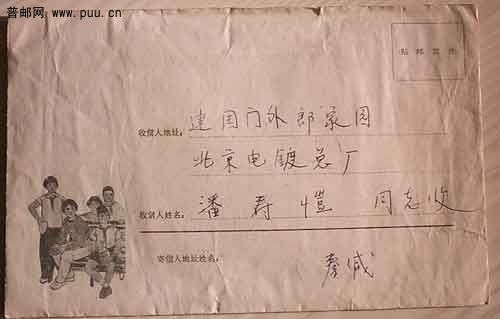 普邮网 www.puu.cn
贴邮票处
收信人地址: 建国门外郎家园
北京电镀总厂
收信人姓名: 潘寿恺 同志收
寄信人地址姓名: 秦缄